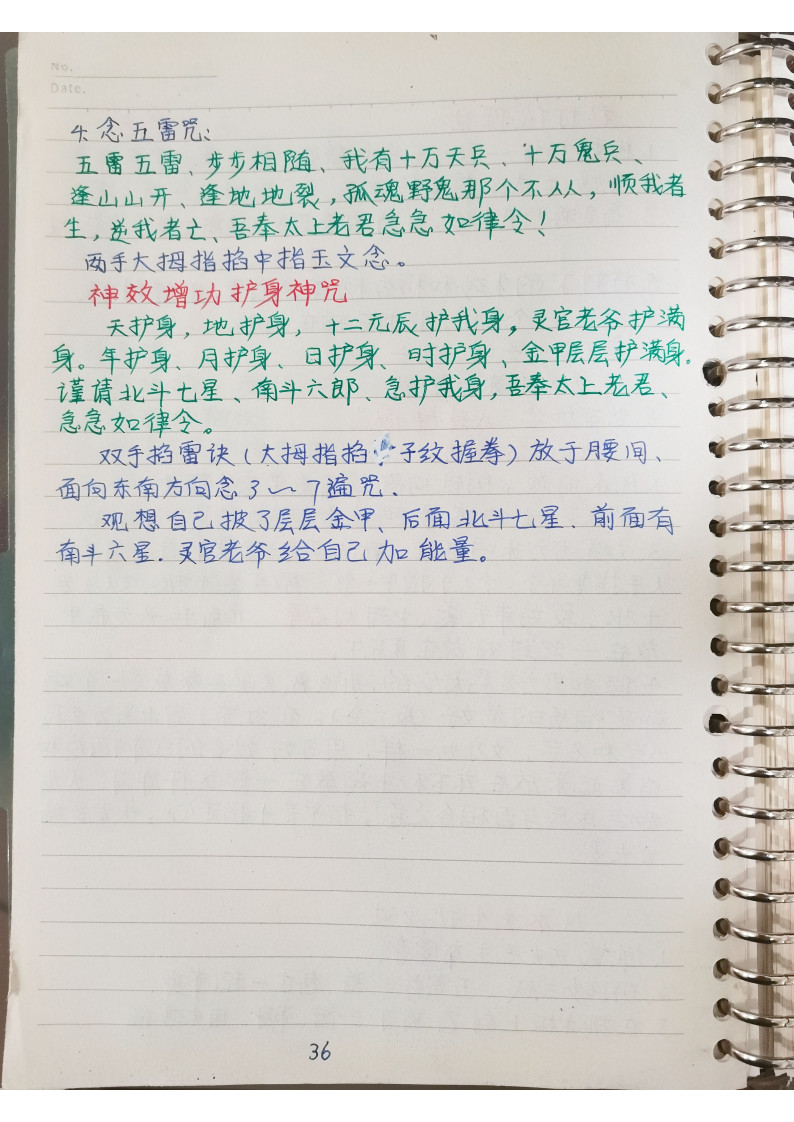 No.
Date.
4. 念五雷咒:
五雷五雷、步步相随、我有十万天兵、十万鬼兵、
逢山山开、逢地地裂,孤魂野鬼那个不从,顺我者
生,逆我者亡、吾奉太上老君急急如律令!
两手大拇指掐中指玉文念。
神效增功护身神咒
天护身,地护身,十二元辰护我身,灵官老爷护满
身。年护身、月护身、日护身、时护身、金甲层层护满身。
谨请北斗七星、南斗六郎、急护我身,吾奉太上老君、
急急如律令。
双手掐雷诀(大拇指掐子纹握拳)放于腰间、
面向东南方向念3~7遍咒.
观想自己披了层层金甲、后面北斗七星.前面有
南斗六星.灵官老爷给自己加能量。
36